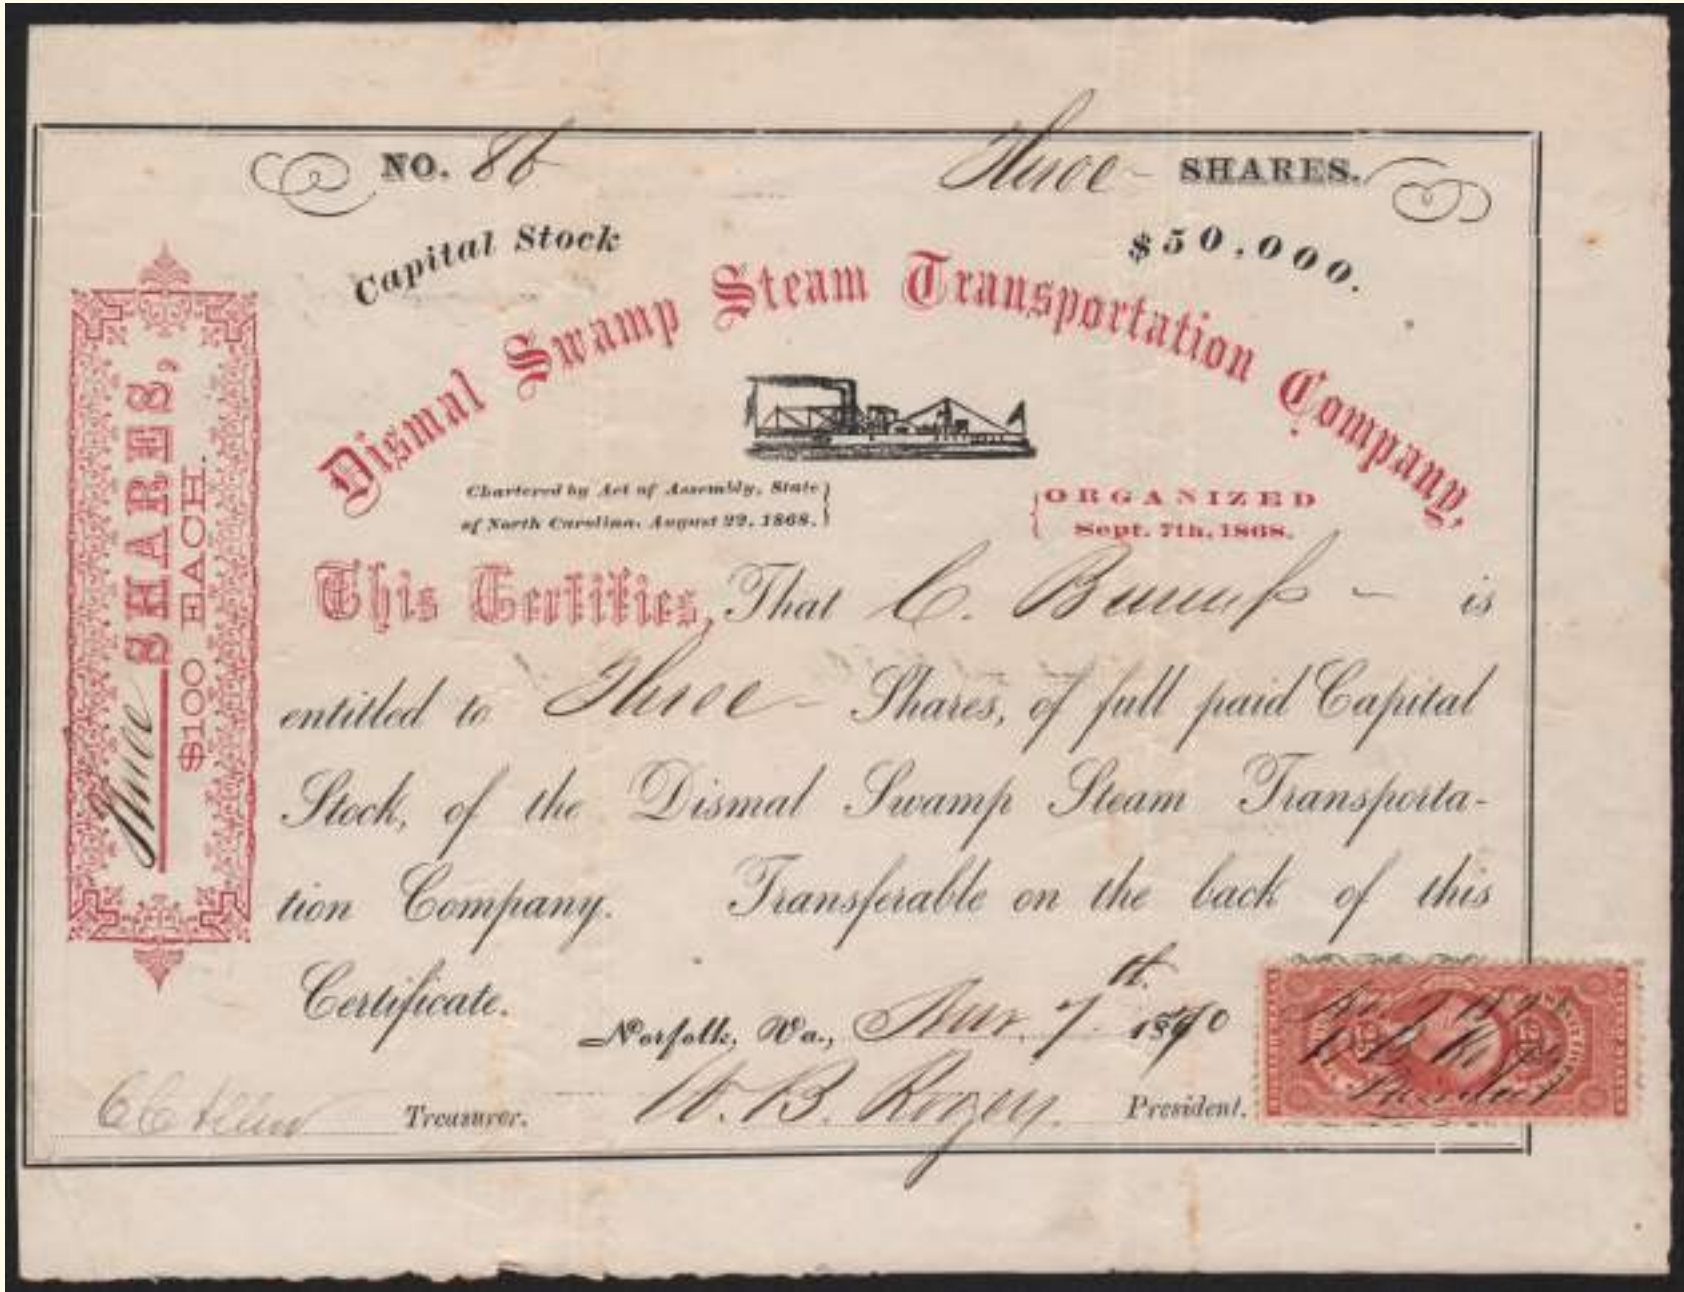 NO. 86 Three SHARES.
Capital Stock $50,000.
Dismal Swamp Steam Transportation Company,
Chartered by Act of Assembly, State
of North Carolina, August 22, 1868.
ORGANIZED
Sept. 7th, 1868.
Three SHARES,
$100 EACH.
This Certifies, That C. is
entitled to Three Shares, of full paid Capital
Stock, of the Dismal Swamp Steam Transporta-
tion Company. Transferable on the back of this
Certificate.
Norfolk, Va., 7th 1870
Treasurer. W. B. Rogers. President.